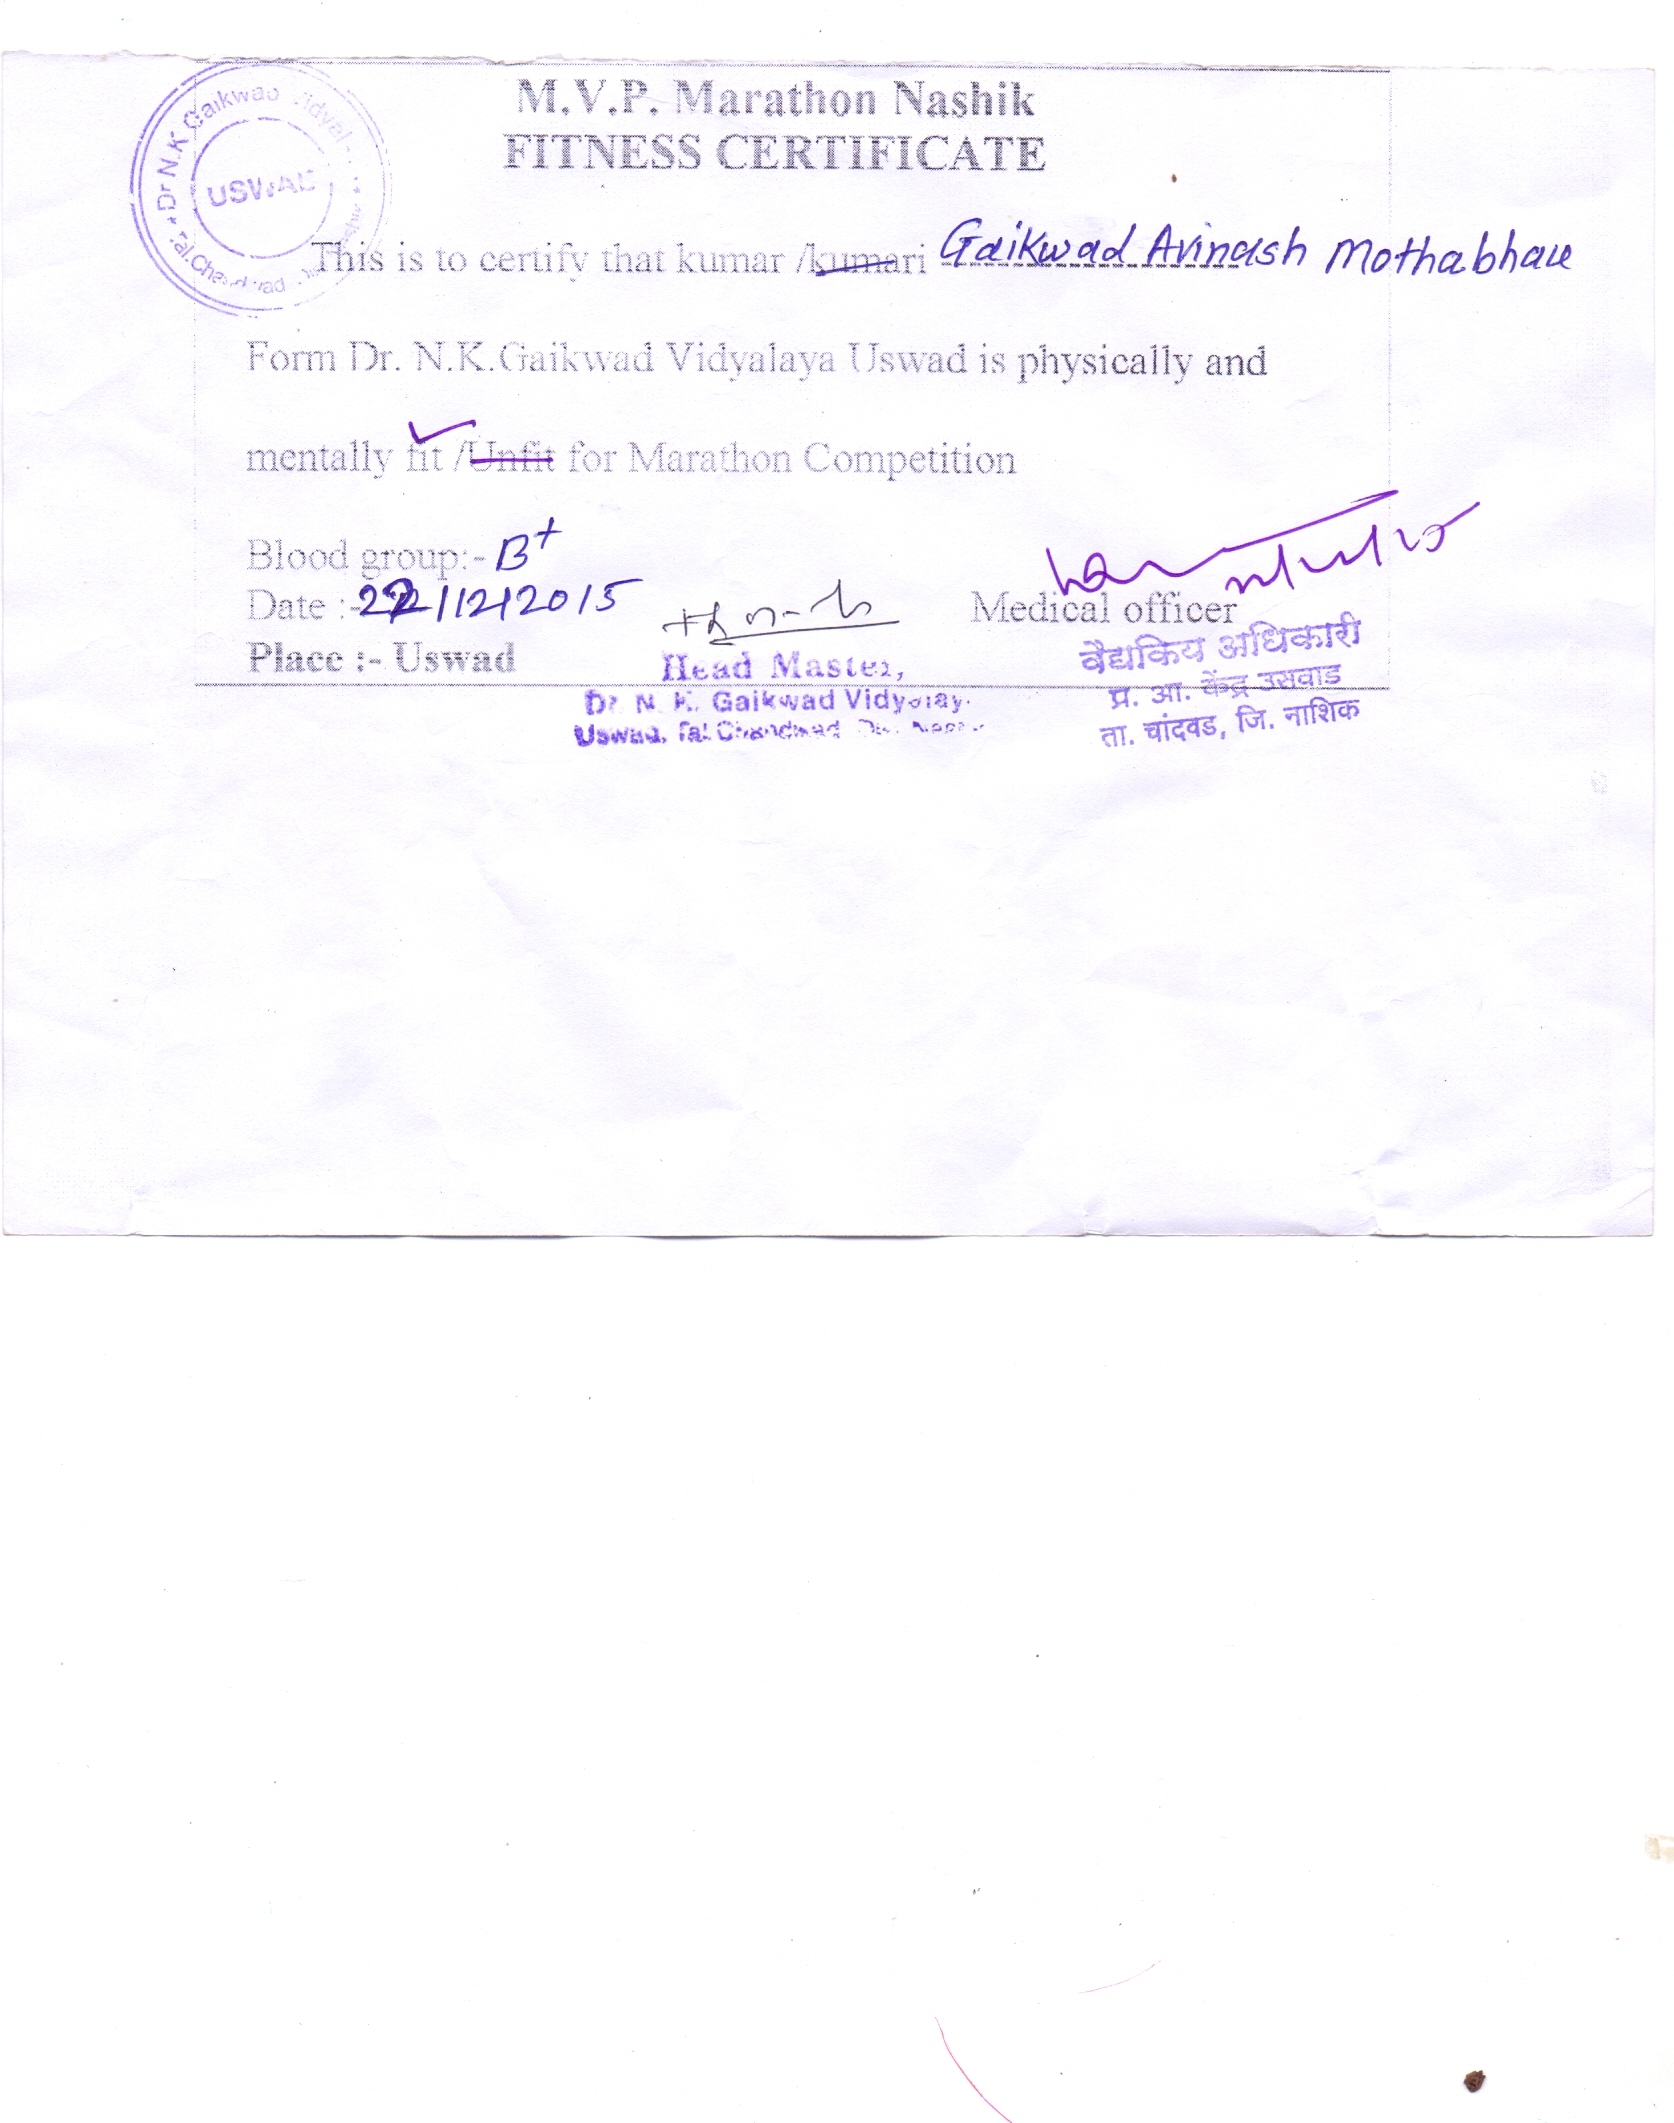 M.V.P. Marathon Nashik
FITNESS CERTIFICATE
Dr N.K. Gaikwad
USWAD
This is to certify that kumar /kumari Gaikwad Avinash Mothabhau
Form Dr. N.K.Gaikwad Vidyalaya Uswad is physically and
mentally fit /Unfit for Marathon Competition
Blood group:- B+
Date :- 22/12/2015
Medical officer
Place :- Uswad
Head Master,
Dr. N. K. Gaikwad Vidyalay
Uswad, Tal. Chandwad
वैद्यकिय अधिकारी
प्र. आ. केंद्र उसवाड
ता. चांदवड, जि. नाशिक